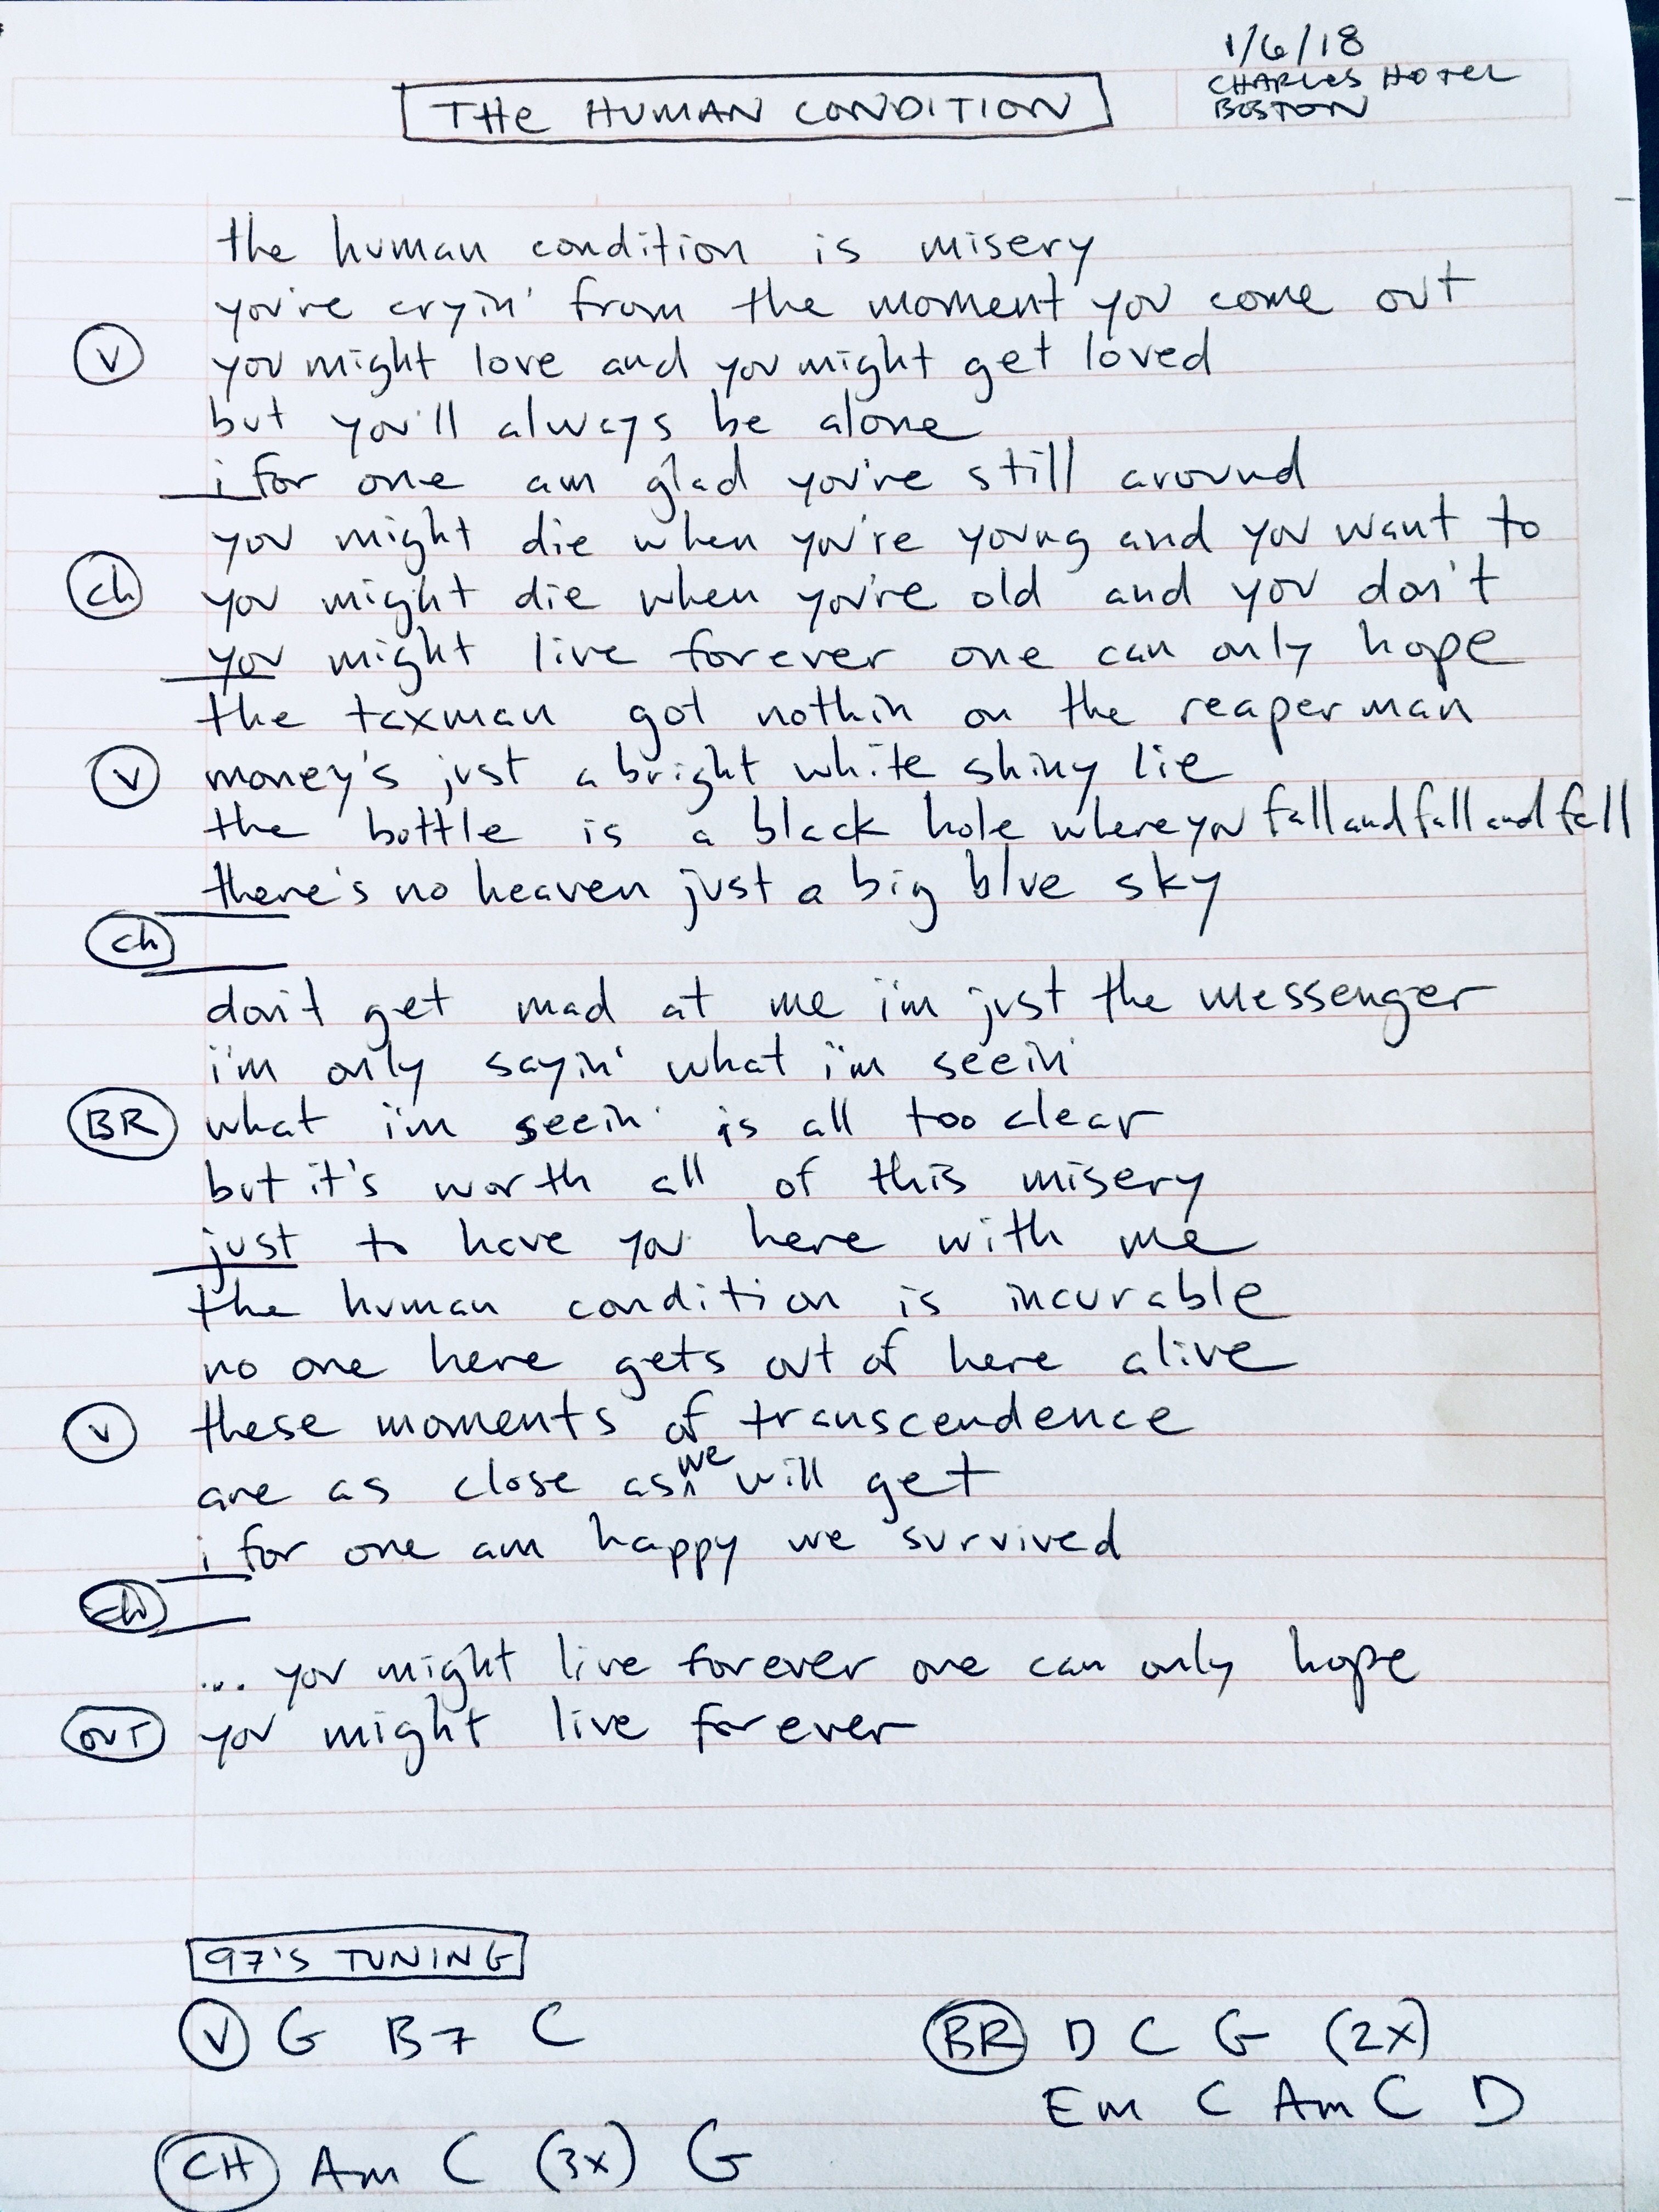 1/6/18
CHARLES HOTEL
BOSTON
THE HUMAN CONDITION
the human condition is misery
you're cryin' from the moment you come out
V you might love and you might get loved
but you'll always be alone
i for one am glad you're still around
you might die when you're young and you want to
ch you might die when you're old and you don't
you might live forever one can only hope
the taxman got nothin on the reaper man
V money's just a bright white shiny lie
the bottle is a black hole where you fall and fall and fall
there's no heaven just a big blue sky
ch
don't get mad at me i'm just the messenger
i'm only sayin' what i'm seein'
BR what i'm seein' is all too clear
but it's worth all of this misery
just to have you here with me
the human condition is incurable
no one here gets out of here alive
V these moments of transcendence
are as close as we will get
i for one am happy we survived
ch
... you might live forever one can only hope
OUT you might live forever
97'S TUNING
V G B7 C
BR D C G (2x)
Em C Am C D
CH Am C (3x) G